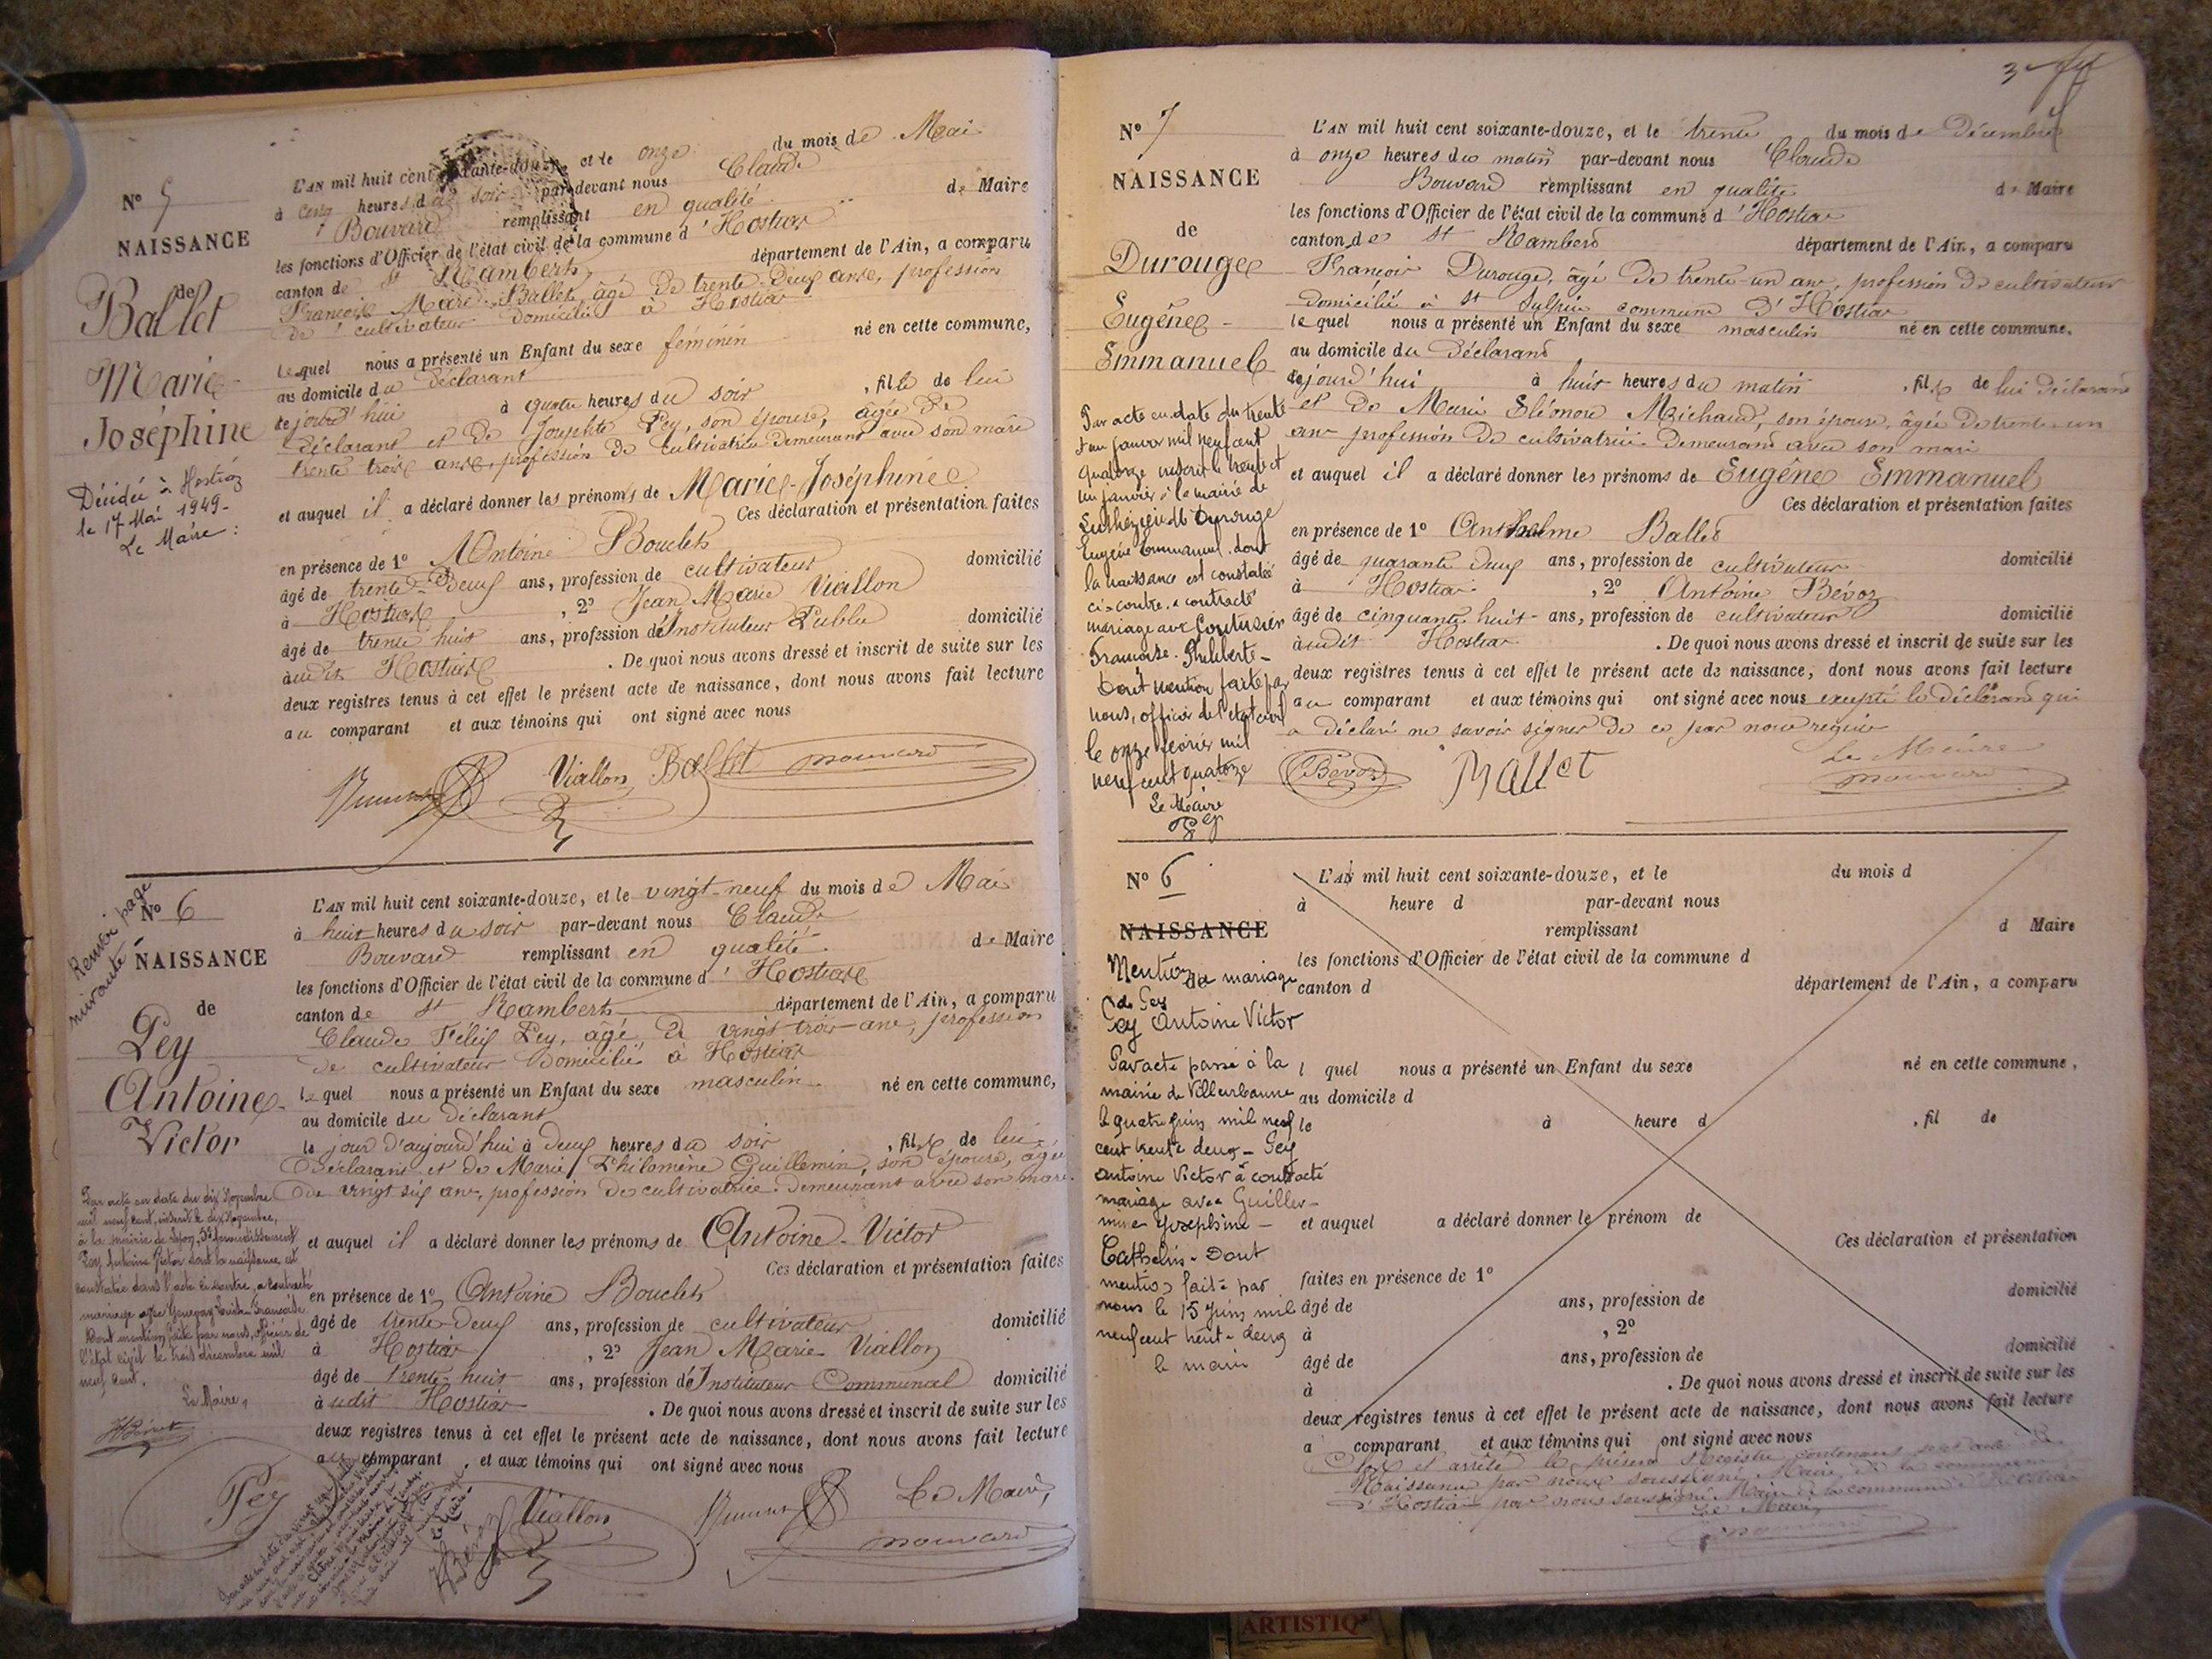 N° 5
NAISSANCE
de
Ballet
Marie
Joséphine
Décédée à Hostiaz
le 17 Mai 1949-
Le Maire :
L'AN mil huit cent soixante-douze, et le onze du mois de Mai
à cinq heures du soir par-devant nous Claude
Bouvard remplissant en qualité de Maire
les fonctions d'Officier de l'état civil de la commune d'Hostiaz
canton de St Rambert département de l'Ain, a comparu
François Marie Ballet âgé de trente-deux ans, profession
de cultivateur domicilié à Hostiaz
lequel nous a présenté un Enfant du sexe féminin né en cette commune,
au domicile du déclarant
cejourd'hui à quatre heures du soir , fille de lui
déclarant et de Josephte Pey, son épouse, âgée de
trente trois ans, profession de cultivatrice demeurant avec son mari
et auquel il a déclaré donner les prénoms de Marie-Joséphine
Ces déclaration et présentation faites
en présence de 1° Antoine Bouclet
âgé de trente-deux ans, profession de cultivateur domicilié
à Hostiaz , 2° Jean Marie Viallon
âgé de trente huit ans, profession d'Instituteur Public domicilié
audit Hostiaz . De quoi nous avons dressé et inscrit de suite sur les
deux registres tenus à cet effet le présent acte de naissance, dont nous avons fait lecture
au comparant et aux témoins qui ont signé avec nous
Viallon Ballet Bouvard
Renvoi page
suivante
N° 6
NAISSANCE
de
Pey
Antoine
Victor
Par acte en date du dix Novembre
mil neuf cent, inscrit le dix Novembre,
à la mairie de Lyon, 3e arrondissement
Pey Antoine Victor dont la naissance est
constatée dans l'acte ci-contre, a contracté
mariage avec Louise Françoise
Dont mention faite par nous, officier de
l'état civil le trois décembre mil
neuf cent.
Le Maire,
L'AN mil huit cent soixante-douze, et le vingt-neuf du mois de Mai
à huit heures du soir par-devant nous Claude
Bouvard remplissant en qualité de Maire
les fonctions d'Officier de l'état civil de la commune d'Hostiaz
canton de St Rambert département de l'Ain, a comparu
Claude Félix Pey, âgé de vingt trois ans, profession
de cultivateur domicilié à Hostiaz
lequel nous a présenté un Enfant du sexe masculin né en cette commune,
au domicile du déclarant
le jour d'aujourd'hui à deux heures du soir , fils de lui
déclarant et de Marie Philomène Guillemin, son épouse, âgée
de vingt six ans, profession de cultivatrice demeurant avec son mari
et auquel il a déclaré donner les prénoms de Antoine-Victor
Ces déclaration et présentation faites
en présence de 1° Antoine Bouclet
âgé de trente-deux ans, profession de cultivateur domicilié
à Hostiaz , 2° Jean Marie Viallon
âgé de trente-huit ans, profession d'Instituteur Communal domicilié
audit Hostiaz . De quoi nous avons dressé et inscrit de suite sur les
deux registres tenus à cet effet le présent acte de naissance, dont nous avons fait lecture
au comparant , et aux témoins qui ont signé avec nous
Pey Viallon Le Maire,
Bouvard
3
N° 7
NAISSANCE
de
Durouge
Eugène
Emmanuel
Par acte en date du trente
et un janvier mil neuf cent
quatorze inscrit le trente et
un janvier à la mairie de
Durouge
Eugène Emmanuel dont
la naissance est constatée
ci-contre a contracté
mariage avec Couturier
Françoise Philiberte -
Dont mention faite par
nous, officier de l'état civil
le onze février mil
neuf cent quatorze
Le Maire
Pey
L'AN mil huit cent soixante-douze, et le trente du mois de Décembre
à onze heures du matin par-devant nous Claude
Bouvard remplissant en qualité de Maire
les fonctions d'Officier de l'état civil de la commune d'Hostiaz
canton de St Rambert département de l'Ain, a comparu
François Durouge, âgé de trente-un ans, profession de cultivateur
domicilié à St Sulpice commune d'Hostiaz
lequel nous a présenté un Enfant du sexe masculin né en cette commune.
au domicile du déclarant
cejourd'hui à huit heures du matin , fils de lui déclarant
et de Marie Eléonore Michaud, son épouse, âgée de trente-un
ans profession de cultivatrice demeurant avec son mari
et auquel il a déclaré donner les prénoms de Eugène Emmanuel
Ces déclaration et présentation faites
en présence de 1° Anthelme Ballet
âgé de quarante deux ans, profession de cultivateur domicilié
à Hostiaz , 2° Antoine Bévoz
âgé de cinquante huit ans, profession de cultivateur domicilié
audit Hostiaz . De quoi nous avons dressé et inscrit de suite sur les
deux registres tenus à cet effet le présent acte de naissance, dont nous avons fait lecture
au comparant et aux témoins qui ont signé avec nous excepté le déclarant qui
a déclaré ne savoir signer de ce par nous requis
Le Maire
Bévoz Ballet Bouvard
N° 6
NAISSANCE
Mention de mariage
de Pey
Pey Antoine Victor
Par acte passé à la
mairie de Villeurbanne
le quatre juin mil neuf
cent trente deux - Pey
Antoine Victor a contracté
mariage avec Guiller-
mine Joséphine -
Cathelin - Dont
mention faite par
nous le 15 juin mil
neuf cent trente-deux
le maire
L'AN mil huit cent soixante-douze, et le du mois d
à heure d par-devant nous
remplissant d Maire
les fonctions d'Officier de l'état civil de la commune d
canton d département de l'Ain, a comparu
l quel nous a présenté un Enfant du sexe né en cette commune,
au domicile d
le à heure d , fil de
et auquel a déclaré donner le prénom de
Ces déclaration et présentation
faites en présence de 1°
âgé de ans, profession de domicilié
à , 2°
âgé de ans, profession de domicilié
à . De quoi nous avons dressé et inscrit de suite sur les
deux registres tenus à cet effet le présent acte de naissance, dont nous avons fait lecture
a comparant et aux témoins qui ont signé avec nous
Clos et arrêté le présent Registre contenant sept actes de
Naissance par nous soussigné Maire de la commune
d'Hostiaz par nous soussigné Maire de la commune d'Hostiaz
Le Maire
Bouvard
ARTISTIQ